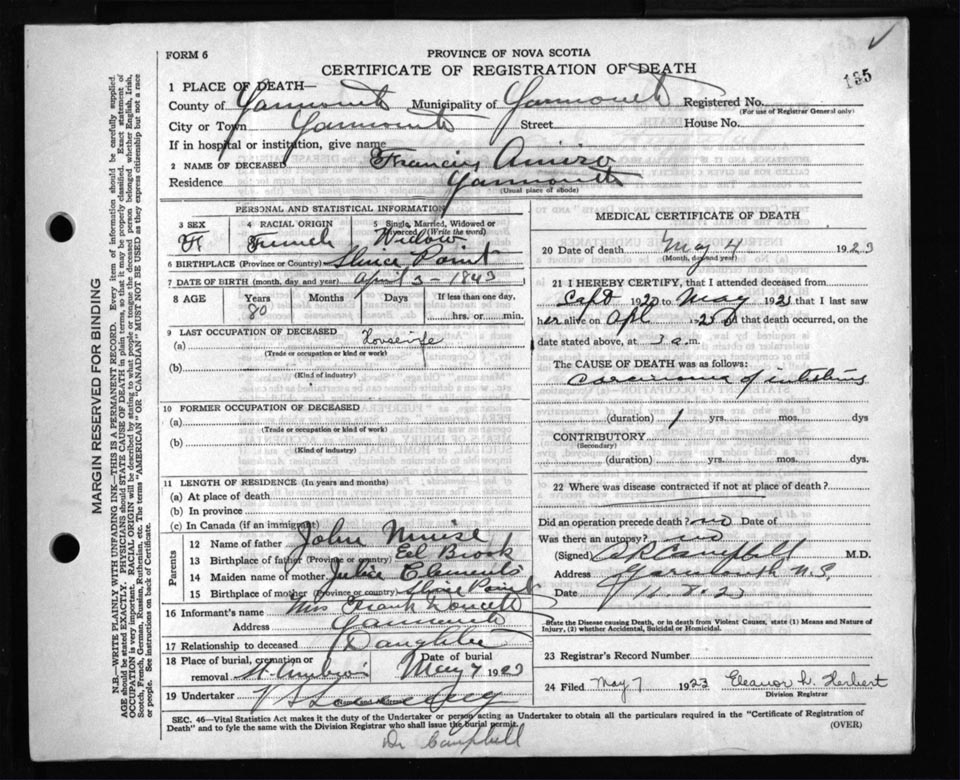 FORM 6
PROVINCE OF NOVA SCOTIA
CERTIFICATE OF REGISTRATION OF DEATH
185
1 PLACE OF DEATH—
County of Yarmouth Municipality of Yarmouth Registered No.
(For use of Registrar General only)
City or Town Yarmouth Street House No.
If in hospital or institution, give name
2 NAME OF DECEASED Francis Amiro
Residence Yarmouth
(Usual place of abode)
PERSONAL AND STATISTICAL INFORMATION
3 SEX 4 RACIAL ORIGIN 5 Single, Married, Widowed or Divorced (Write the word)
F French Widow
6 BIRTHPLACE (Province or Country) Sluice Point
7 DATE OF BIRTH (month, day and year) April 3 - 1843
8 AGE Years Months Days If less than one day,
80 hrs. or min.
9 LAST OCCUPATION OF DECEASED
(a) Housewife
(Trade or occupation or kind or work)
(b)
(Kind of industry)
10 FORMER OCCUPATION OF DECEASED
(a)
(Trade or occupation or kind of work)
(b)
(Kind of industry)
11 LENGTH OF RESIDENCE (In years and months)
(a) At place of death
(b) In province
(c) In Canada (if an immigrant)
Parents
12 Name of father John Muise
13 Birthplace of father (Province or country) Eel Brook
14 Maiden name of mother Julie Clements
15 Birthplace of mother (Province or country) Sluice Point
16 Informant's name Mrs Frank Doucett
Address Yarmouth
17 Relationship to deceased Daughter
18 Place of burial, cremation or removal St Ambrose Date of burial May 7 1923
19 Undertaker
MEDICAL CERTIFICATE OF DEATH
20 Date of death May 4 1923
(Month, day and year)
21 I HEREBY CERTIFY, that I attended deceased from
1920 to May 1923 that I last saw
her alive on Apl and that death occurred, on the
date stated above, at 3 a.m.
The CAUSE OF DEATH was as follows:
Carcinoma of intestines
(duration) 1 yrs. mos. dys
CONTRIBUTORY
(Secondary)
(duration) yrs. mos. dys.
22 Where was disease contracted if not at place of death?
Did an operation precede death? no Date of
Was there an autopsy? no
(Signed) Campbell M.D.
Address Yarmouth N.S.
Date
State the Disease causing Death, or in death from Violent Causes, state (1) Means and Nature of Injury, (2) whether Accidental, Suicidal or Homicidal.
23 Registrar's Record Number
24 Filed May 7 1923 Eleanor W. Herbert
Division Registrar
SEC. 46—Vital Statistics Act makes it the duty of the Undertaker or person acting as Undertaker to obtain all the particulars required in the "Certificate of Registration of
Death" and to fyle the same with the Division Registrar who shall issue the burial permit. (OVER)
Dr Campbell
MARGIN RESERVED FOR BINDING
N.B.—WRITE PLAINLY WITH UNFADING INK—THIS IS A PERMANENT RECORD. Every item of information should be carefully supplied.
AGE should be stated EXACTLY. PHYSICIANS should STATE CAUSE OF DEATH in plain terms, so that it may be properly classified. Exact statement of
OCCUPATION is very important. RACIAL ORIGIN will be described by stating to what people or tongue the deceased person belonged whether English, Irish,
Scotch, French, German, Russian, Ruthenian, etc. The terms "AMERICAN" OR "CANADIAN" MUST NOT BE USED as they express citizenship but not a race
or people. See instructions on back of Certificate.